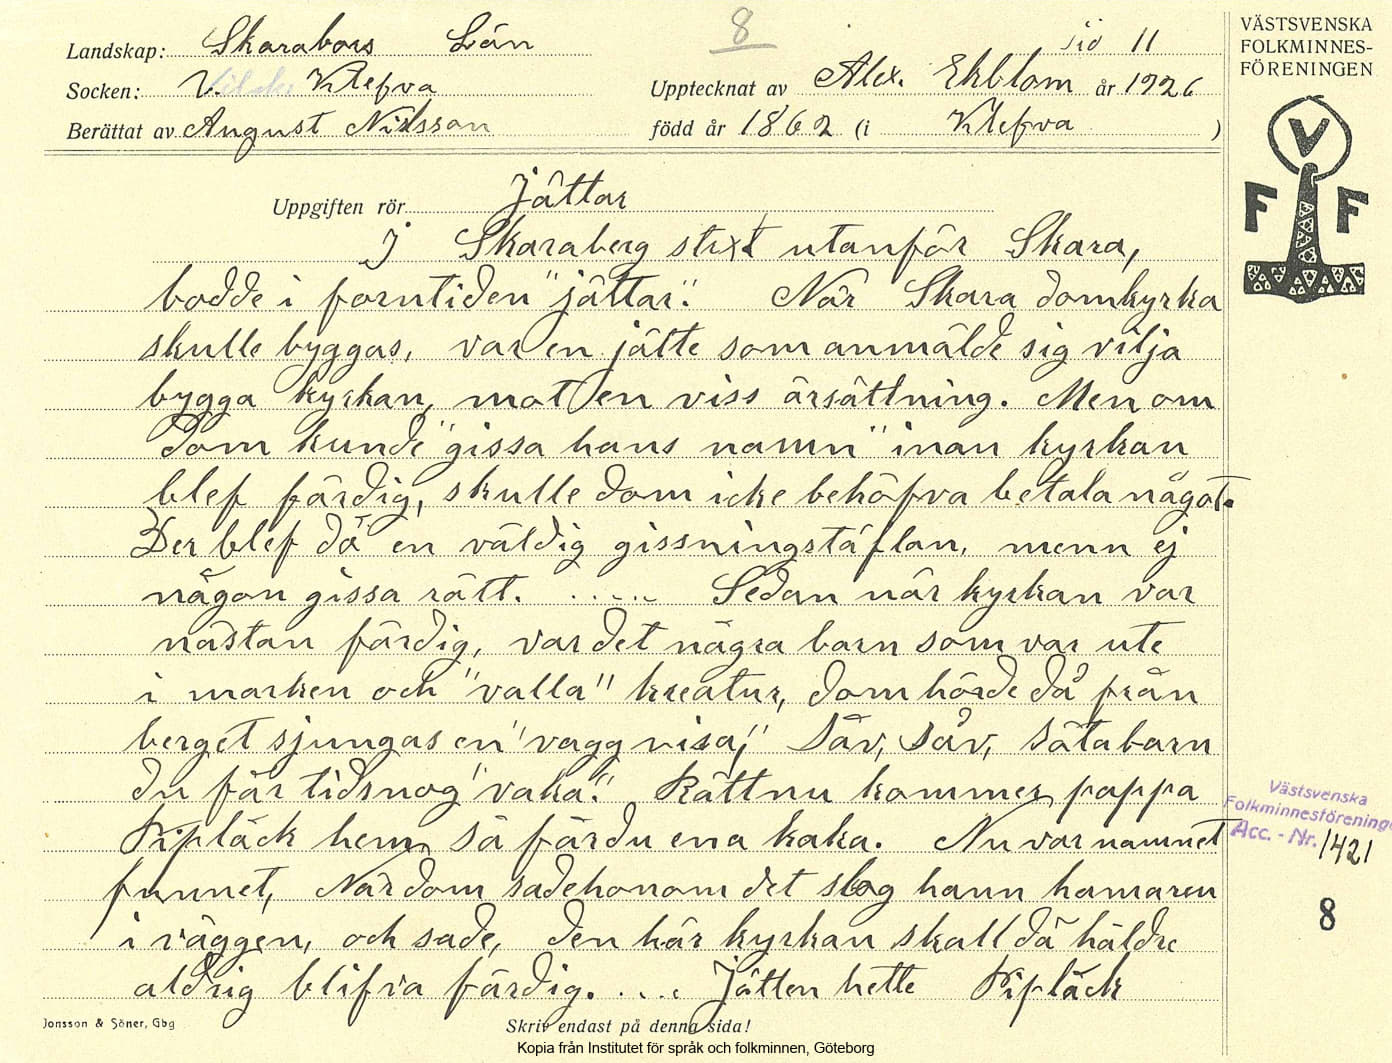 8
Sid 11
Landskap: Skarabors Län
Socken: V. Vilske Klefva
Upptecknat av Alex. Ekblom år 1926
Berättat av August Nilsson
född år 1862 (i Klefva)
VÄSTSVENSKA
FOLKMINNES-
FÖRENINGEN
V
F F
Uppgiften rör Jättar
I Skaraberg strxt utanför Skara,
bodde i forntiden "jättar". När Skara domkyrka
skulle byggas, var en jätte som anmälde sig vilja
bygga kyrkan, mot en viss ärsättning. Men om
dom kunde "gissa hans namn" inan kyrkan
blef färdig, skulle dom icke behöfva betala något.
Der blef då en väldig gissningstäflan, menn ej
någon gissa rätt. ..... Sedan när kyrkan var
nästan färdig, var det några barn som var ute
i marken och "valla" kreatur, dom hörde då från
berget sjungas en "vaggvisa," Såv, såv, såtabarn
du får tidsnog "vaka". Rättnu kommer pappa
Pipläck hem, så fårdu ena kaka. Nu var namnet
funnet, När dom sadehonom det slog hann hamaren
i väggen, och sade, den här kyrkan skall då häldre
aldrig blifva färdig. .... Jätten hette Pipläck
Västsvenska
Folkminnesförening
Acc. - Nr. 1421
8
Jonsson & Söner, Gbg
Skriv endast på denna sida!
Kopia från Institutet för språk och folkminnen, Göteborg